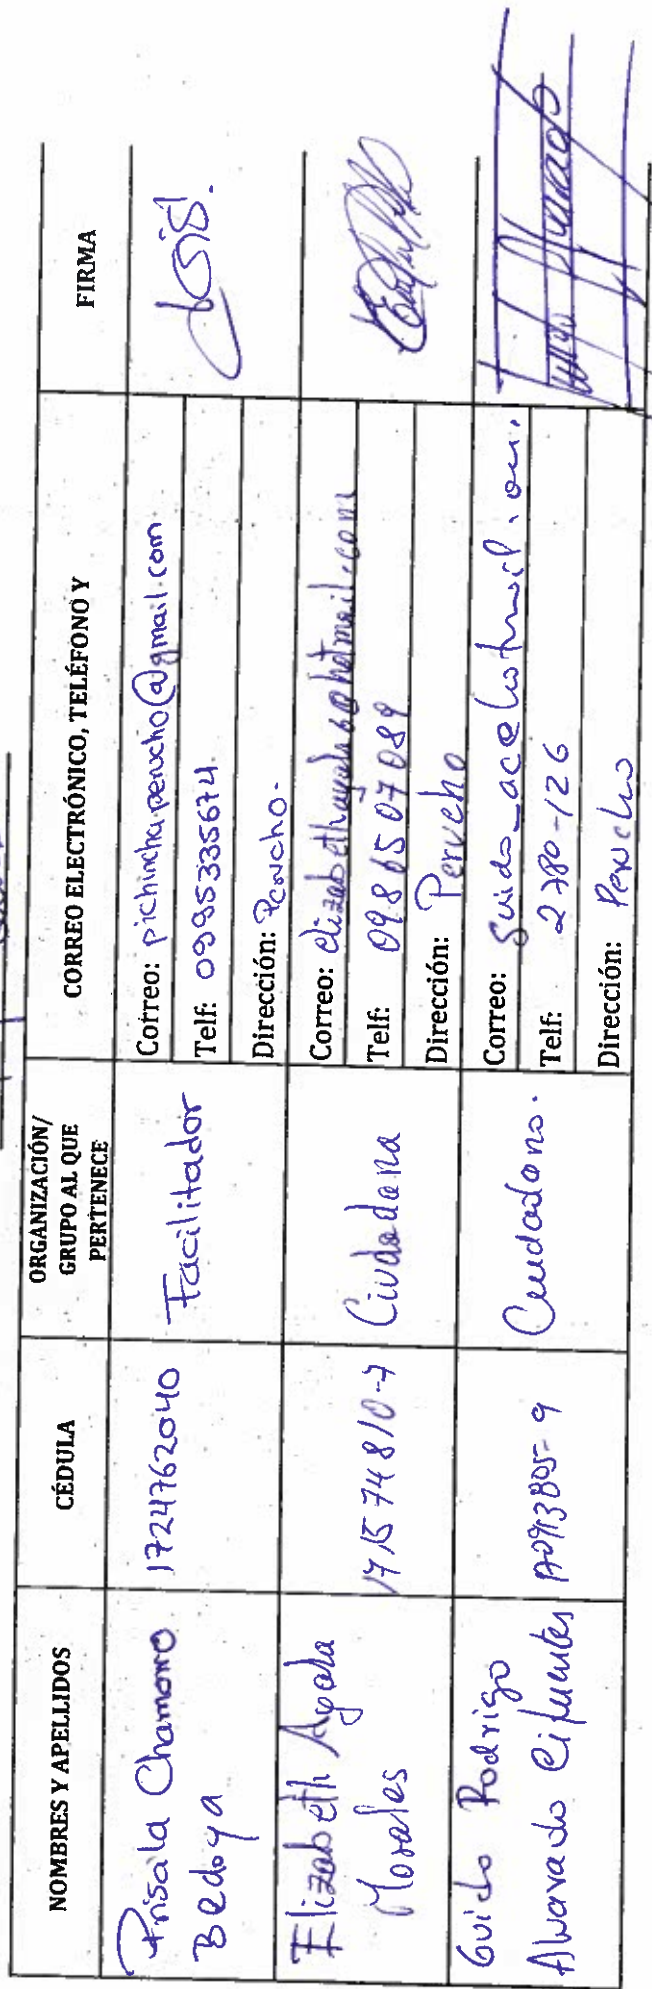 NOMBRES Y APELLIDOS
CÉDULA
ORGANIZACIÓN/
GRUPO AL QUE
PERTENECE
CORREO ELECTRÓNICO, TELÉFONO Y
FIRMA
Prisila Chamorro
Bedoya
1724762040
Facilitador
Correo: pichincha.perucho@gmail.com
Telf: 0995335674
Dirección: Perucho.
Elizabeth Ayala
Morales
171574810-7
Ciudadana
Correo: elizabethayala60hotmail.com
Telf: 0986507089
Dirección: Perucho
Guido Rodrigo
Alvarado Cifuentes
Ciudadano.
Correo: guido_ac@hotmail.com.
Telf: 2780-126
Dirección: Perucho